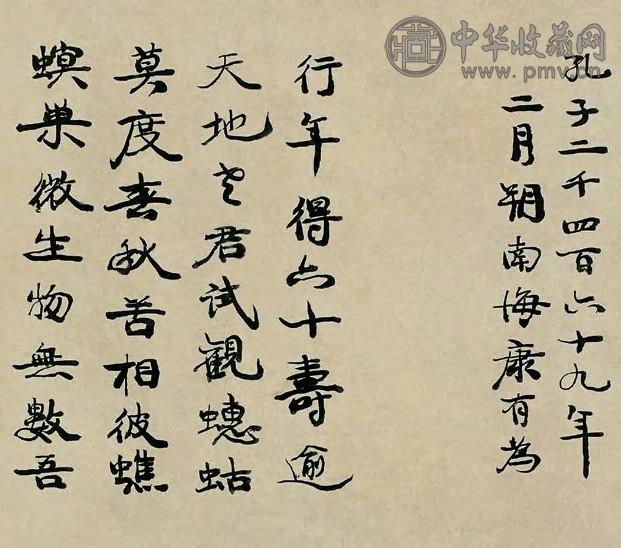 中华收藏网
www.pmv.cn
孔子二千四百六十九年
二月朔南海康有為
行年得六十壽逾
天地老君試觀蟪蛄
莫度春秋苦相彼蟭
螟巢微生物無數吾